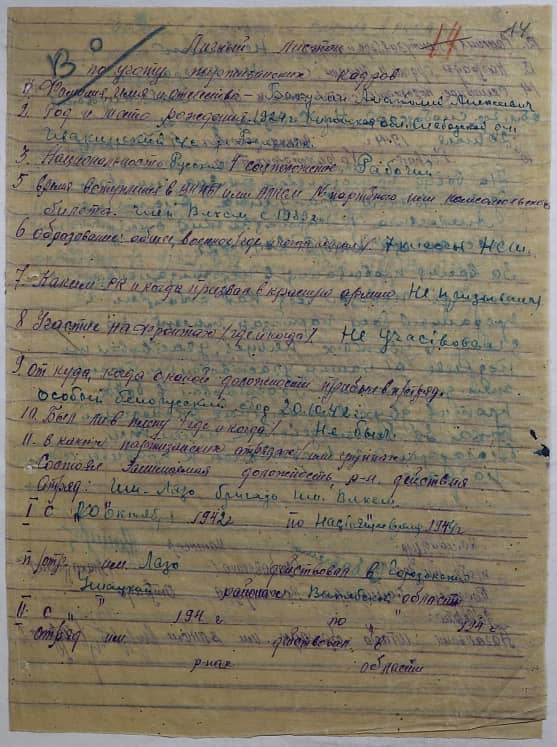 14 14
Личный листок
В
по учету партизанских кадров
1. Фамилия, имя и отчество - Анатолий Алексеевич
2. Год и место рождения 1924 г Кировская обл. Слободской
3. Национальность Русский 4 соцположение Рабочий
5 время вступления в ВКП(б) или ВЛКСМ № партийного или комсомольского
билета. член Влксм с 1939 г.
6 образование: общее, военное /где, / 7 классов НСШ.
7. Каким РК и когда призван в красную армию. Не призывался
8 Участие на фронтах / где и когда /. Не участвовал
9 От куда, когда с какой должности прибыл в отряд.
особой белорусский сбор 20.10.42 г
10. Был ли в плену / где и когда / Не был.
11. в каких партизанских отрядах, или группах
состоял Занимаемая должность, р-н. действия
Отряд: им. Лазо бригада им. Влксм.
I с "20" октября 1942 г по 1944 г
п/отр. им. Лазо действовал в
Ушацком районах Витебской области
II. с " " 194 г по " " 194 г
отряд им. действовал
р-нах области